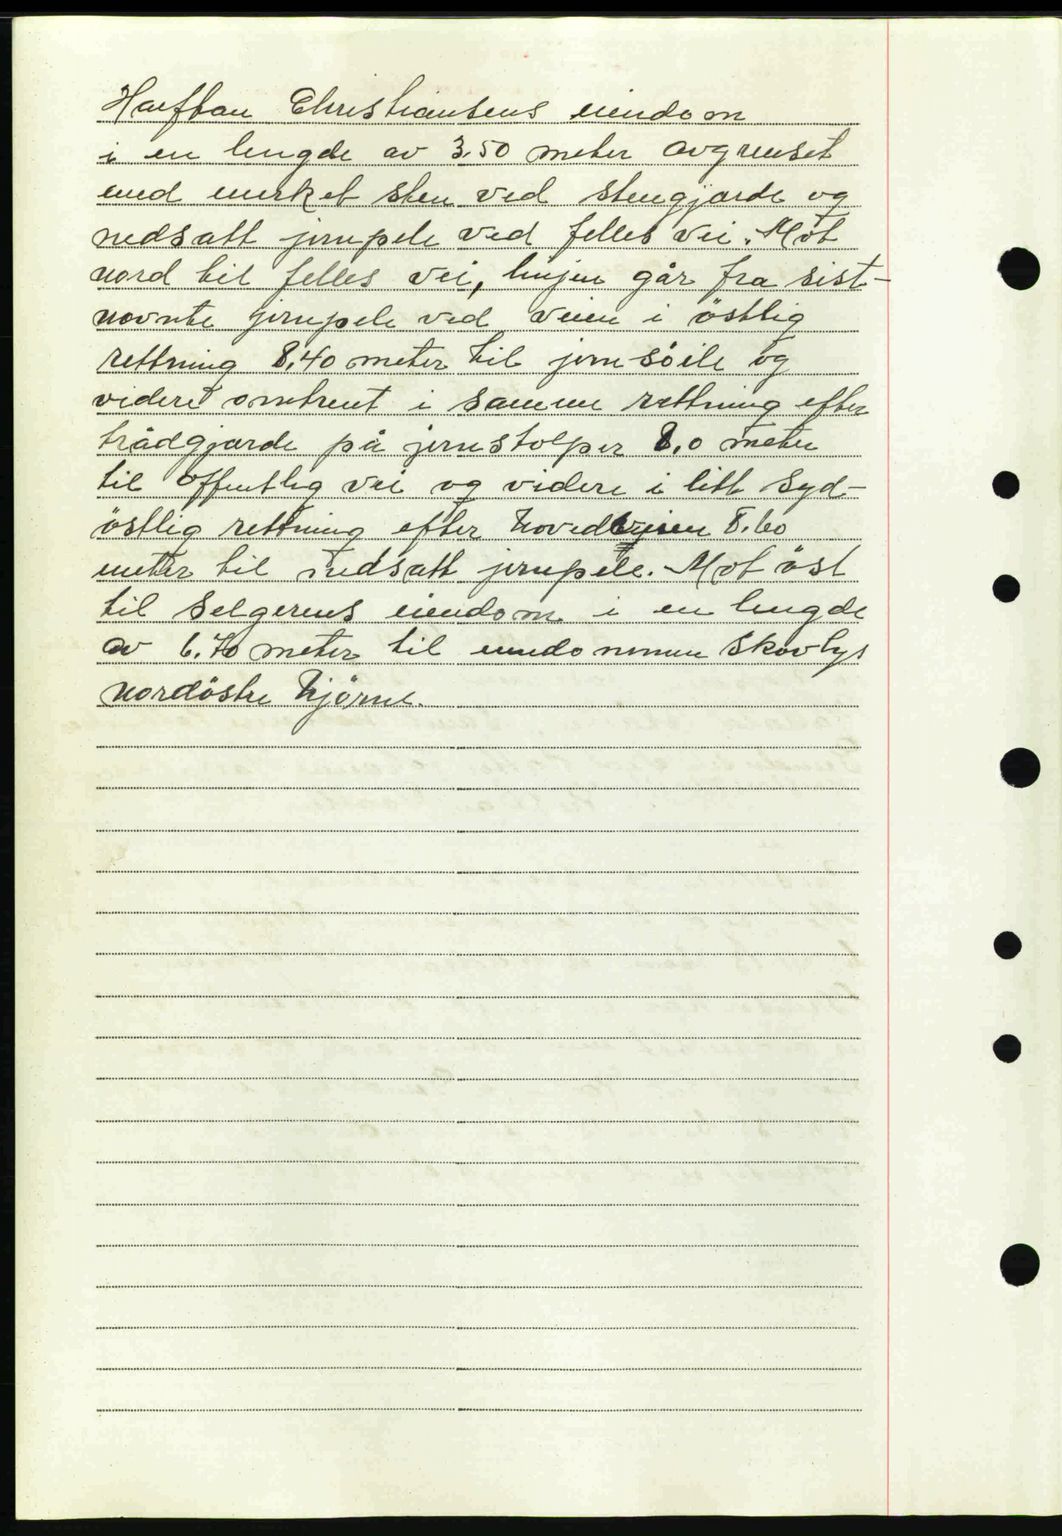 Christiansens eiendom
i en lengde av 3.50 meter avgrenset
med merket sten ved stengjærde og
nedsatt jernpele ved felles vei. Mot
nord til felles vei, linjen går fra sist-
nevnte jernpele ved veien i östlig
rettning 8,40 meter til jernsöile og
videre omtrent i samme rettning efter
trådgjærde på jernstolper 8,0 meter
til offentlig vei og videre i litt syd-
östlig rettning efter hovedveien 8.60
meter til nedsatt jernpele. Mot öst
til Selgerens eiendom i en lengde
av 6.70 meter til eiendommen Skovlys
nordöstre hjörne.